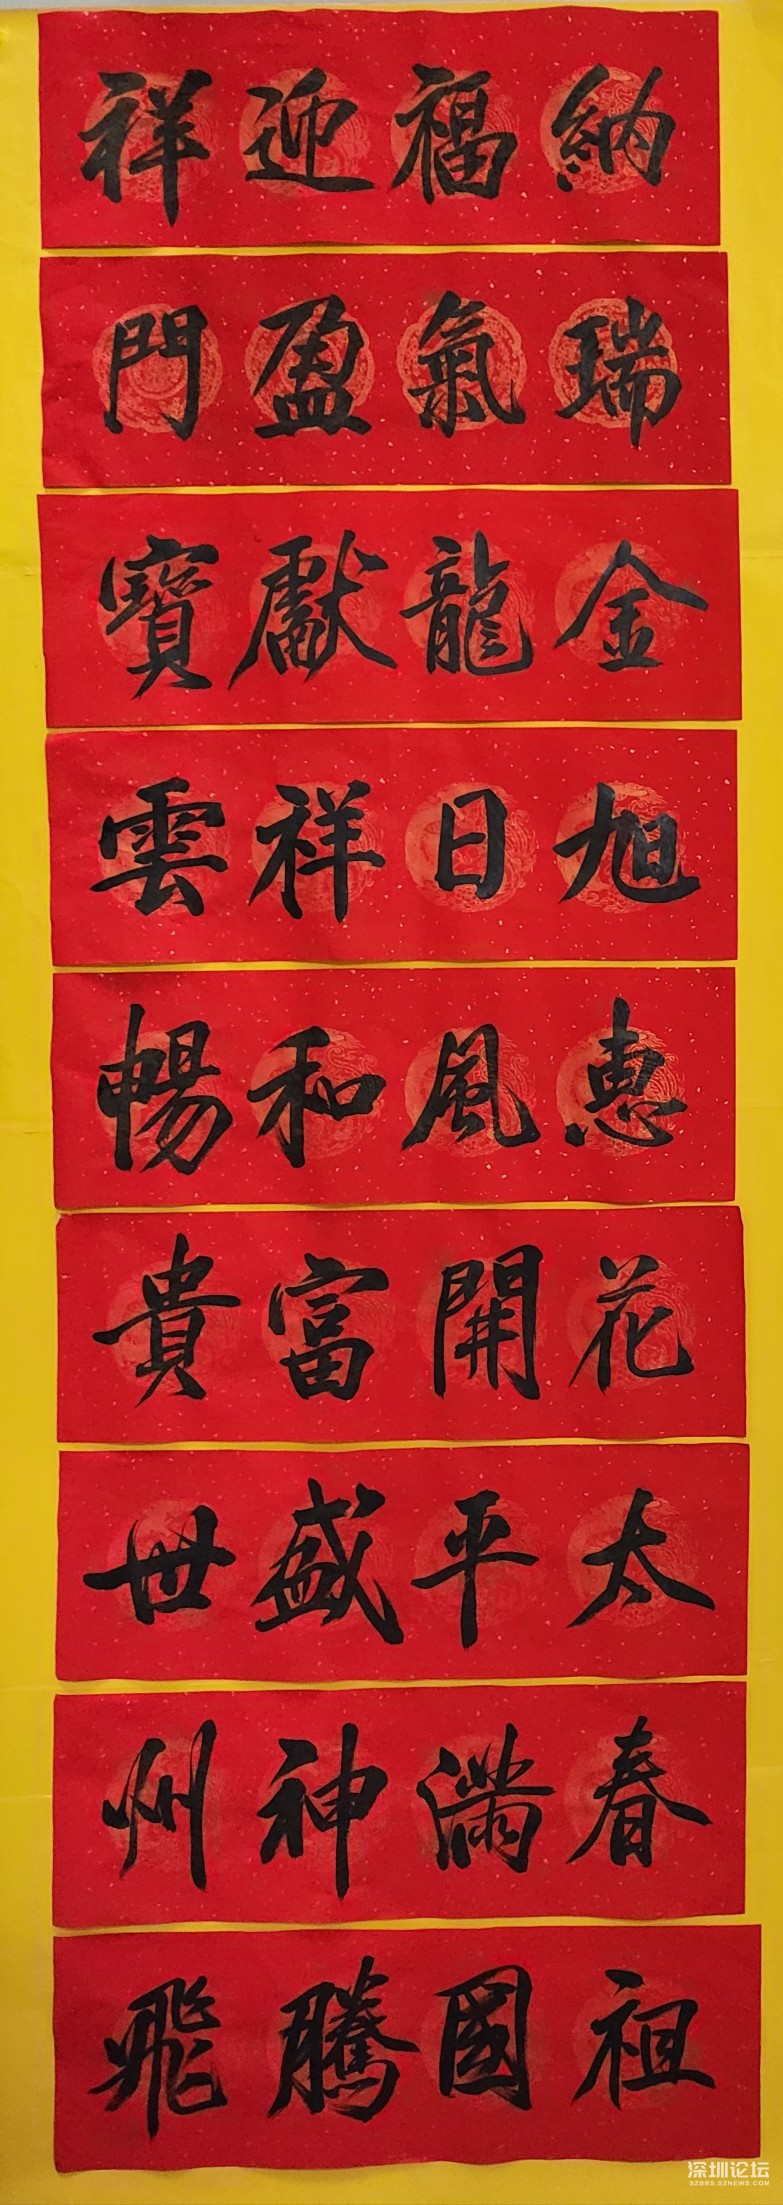 納福迎祥
瑞氣盈門
金龍獻寶
旭日祥雲
惠風和暢
花開富貴
太平盛世
春滿神州
祖國騰飛
深圳论坛
SZBBS.SZNEWS.COM